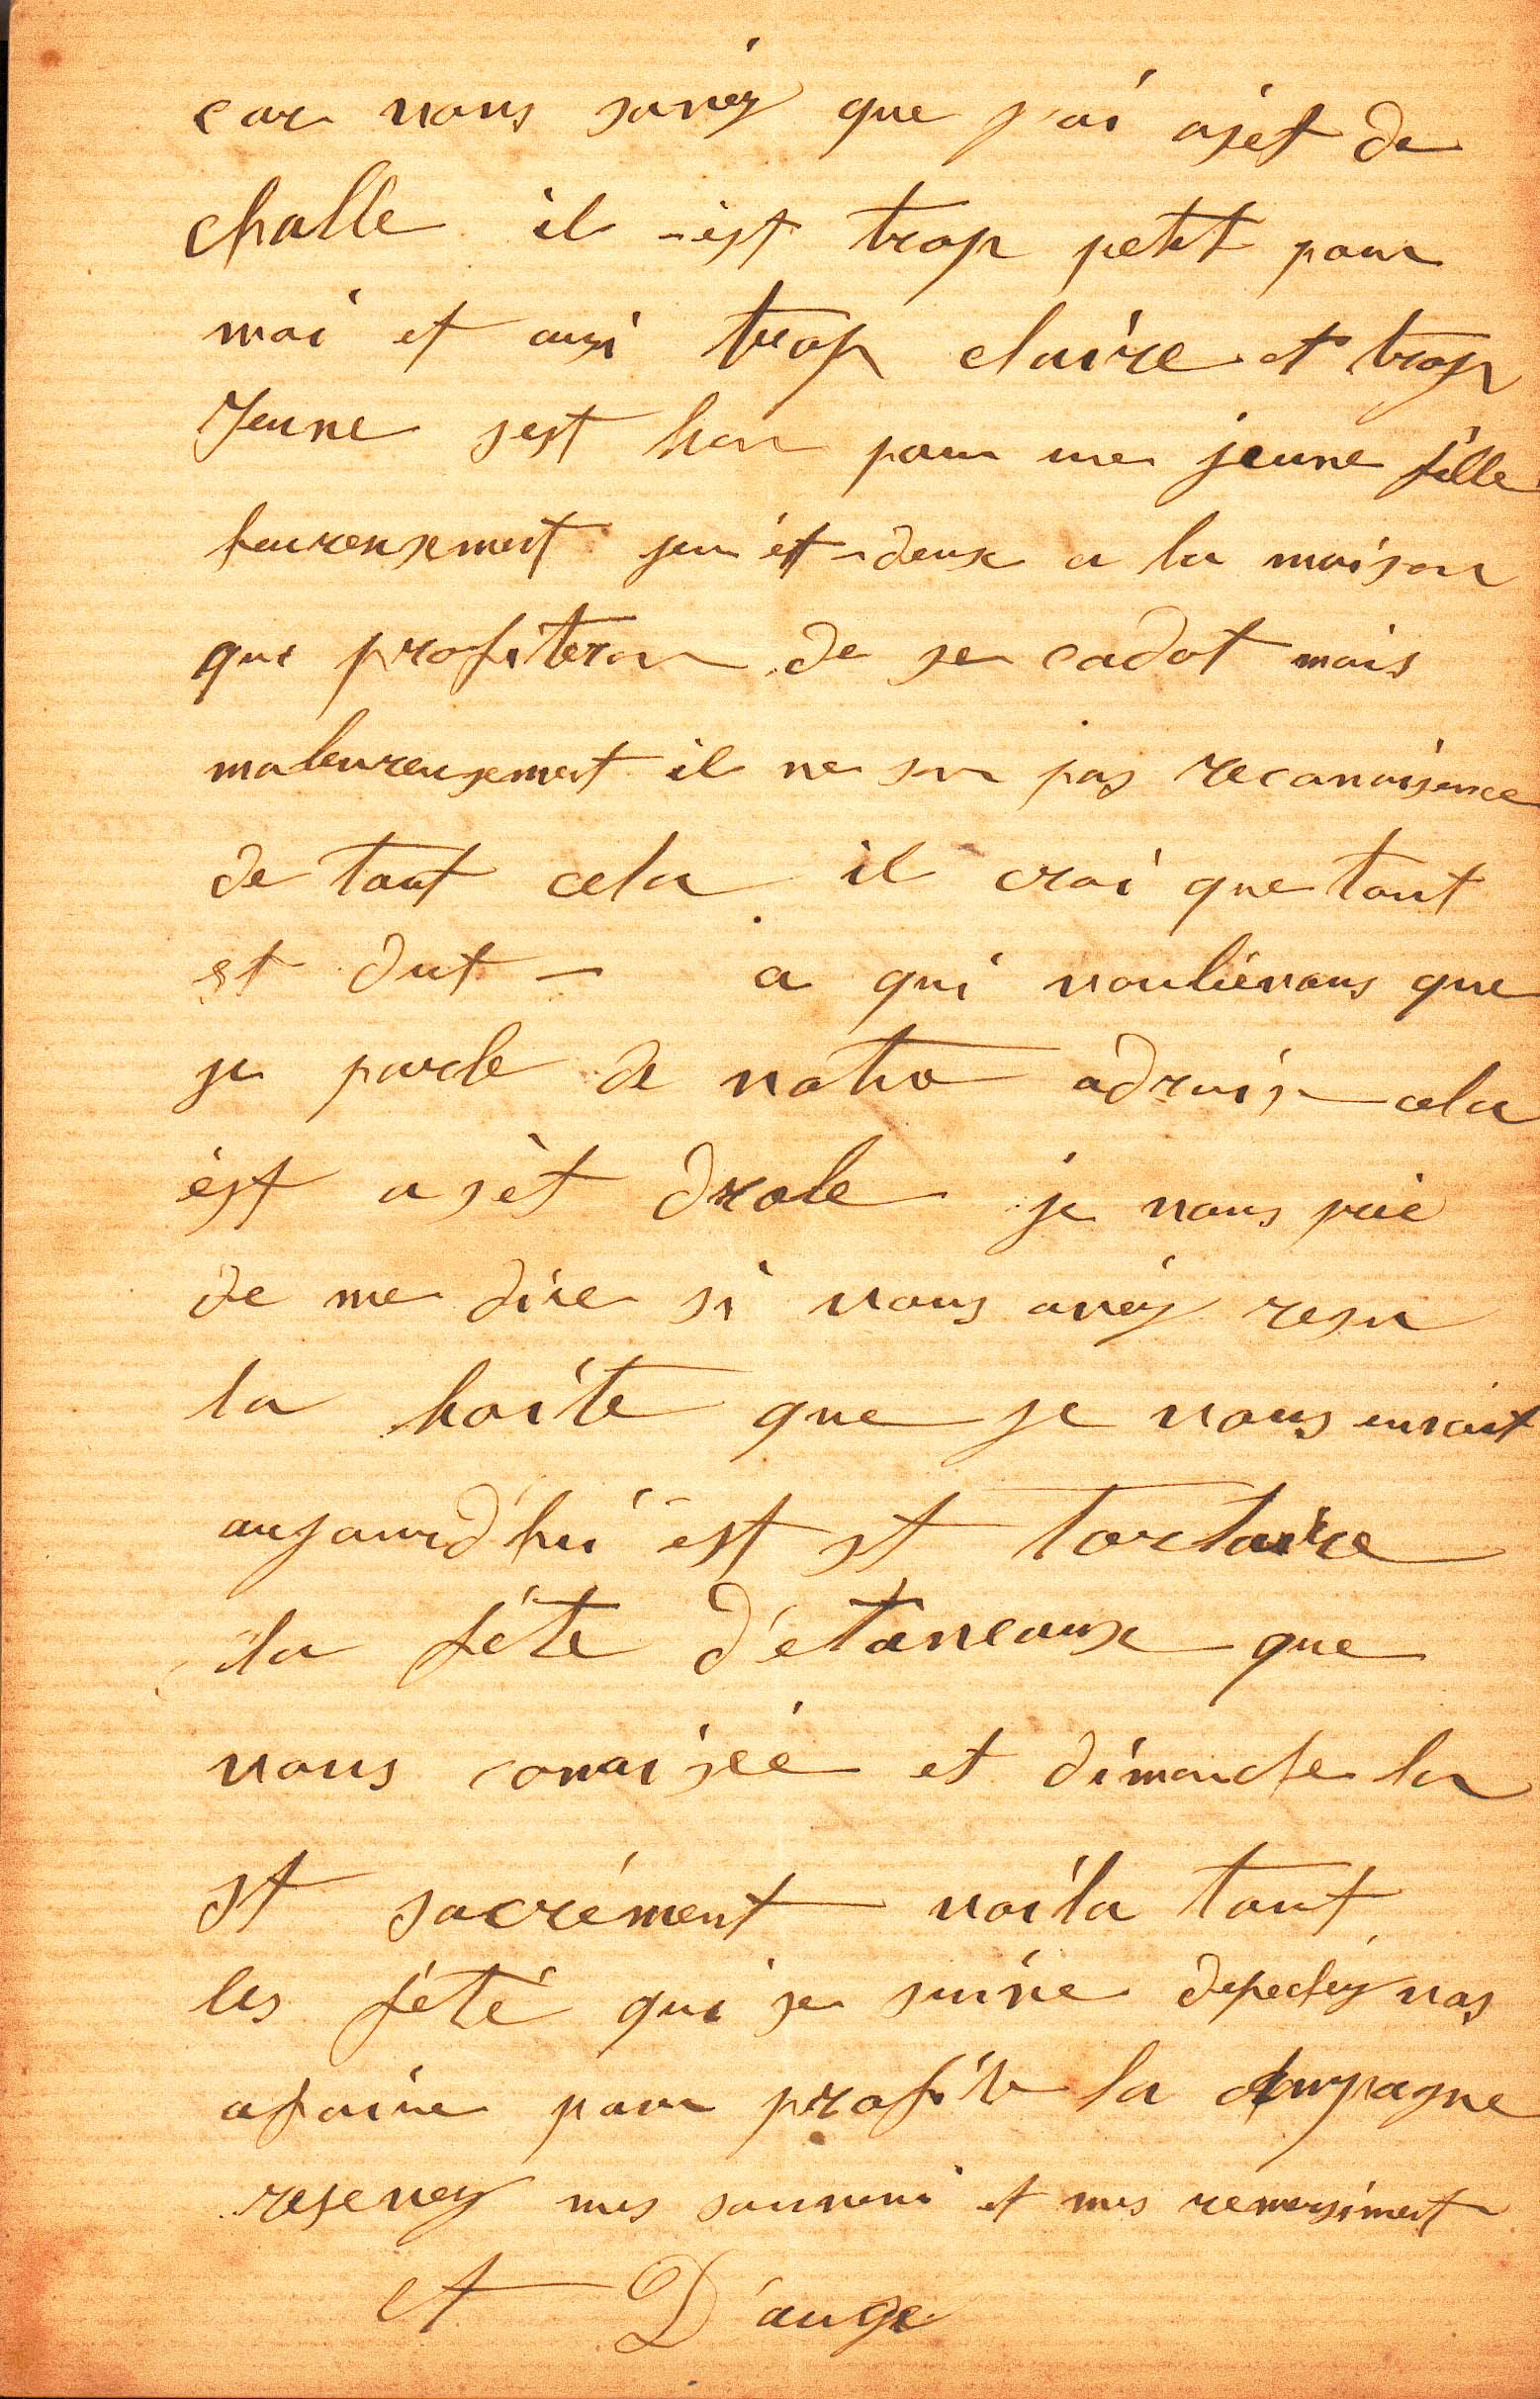 car vous savez que j'ai aset de
challe il est trop petit pour
moi et ausi trop claire et trop
Jeune sest bon pour une jeune fille
heureusement jen èt deux a la maison
qui profiteron de se cadot mais
maleureusement il ne son pas reconaisence
de tout cela il croi que tout
est dut — a qui vouliévous que
je parle de votre adrais cela
èst asèt drole je vous prie
de me dire si vous avéz resu
la boite que je vous envoit
aujourd'hui est st Torlaire
la féte d'étaneaux que
vous conaiséé et dimanche la
st sacrément voila tout
les fété qui se suive dépeché vos
afaire pour profité la campagne
resevez mes souvenir et mes remersiment
A D'auge